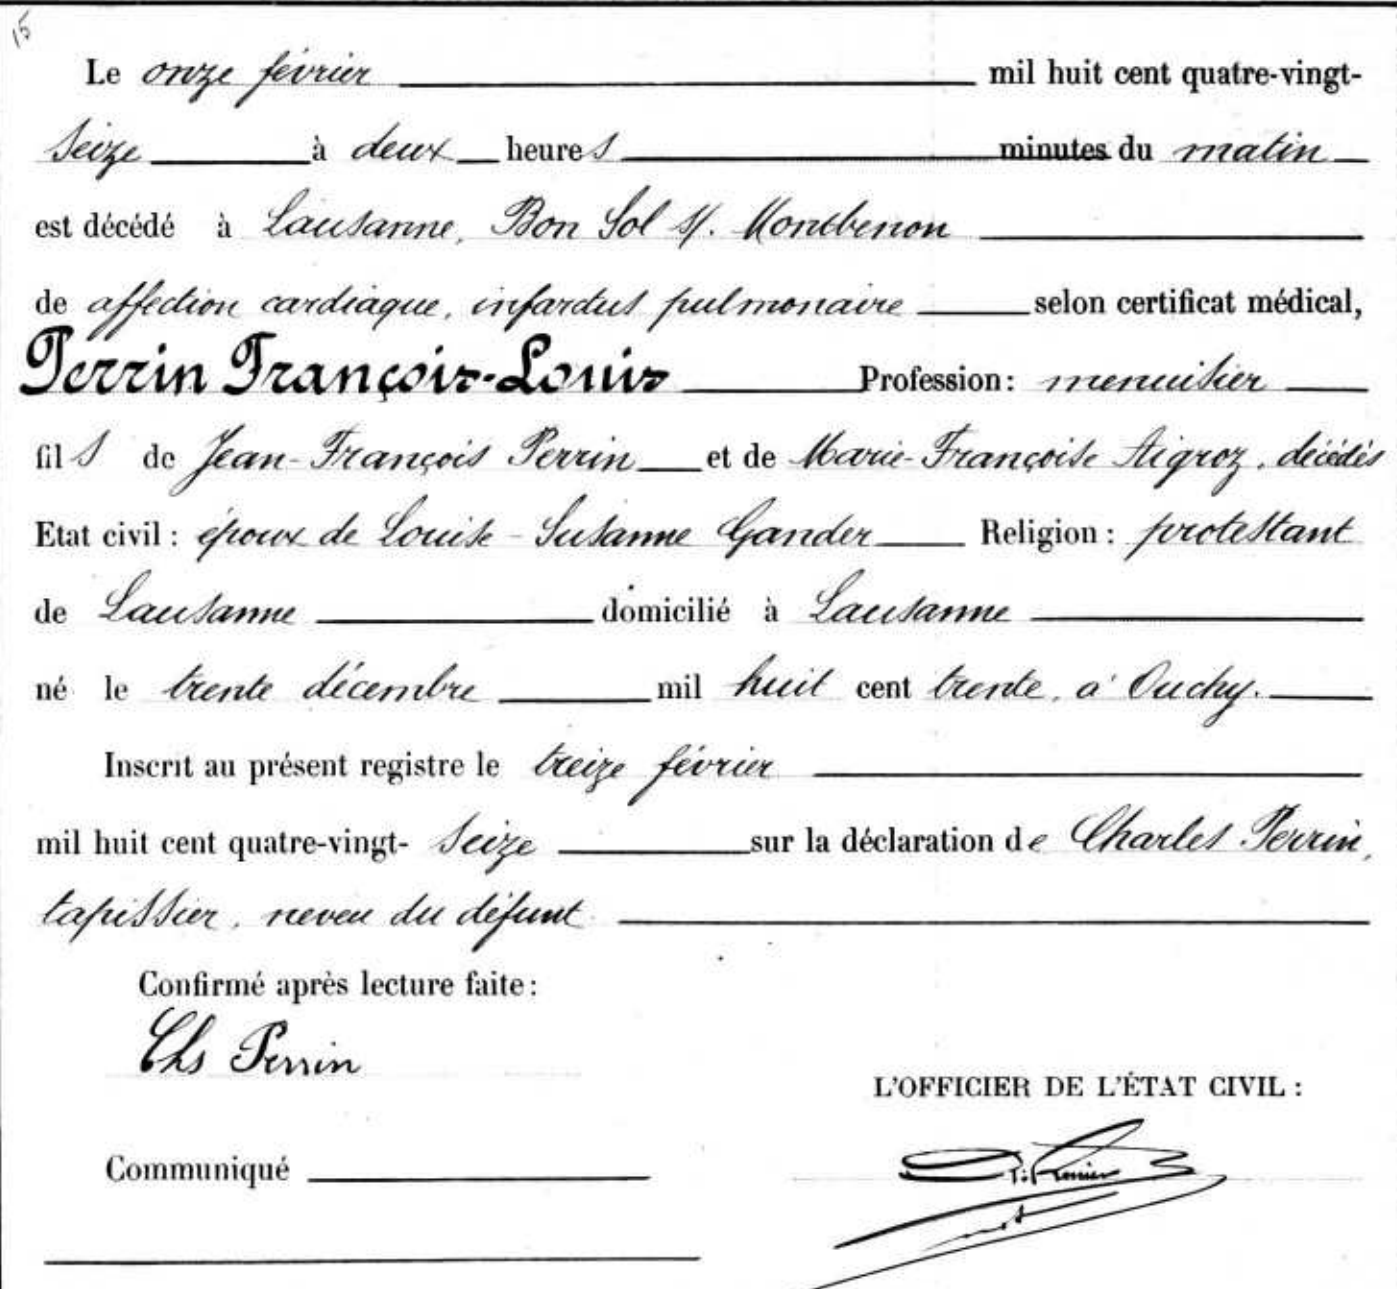 15
Le onze février mil huit cent quatre-vingt-
seize à deux heures minutes du matin
est décédé à Lausanne, Bon Sol s/. Montbenon
de affection cardiaque, infarctus pulmonaire selon certificat médical,
Perrin François-Louis Profession: menuisier
fils de Jean-François Perrin et de Marie-Françoise Aigroz, décédés
Etat civil: époux de Louise-Susanne Gander Religion: protestant
de Lausanne domicilié à Lausanne
né le trente décembre mil huit cent trente, à Ouchy.
Inscrit au présent registre le treize février
mil huit cent quatre-vingt- seize sur la déclaration de Charles Perrin,
tapissier, neveu du défunt
Confirmé après lecture faite:
Chs Perrin
L'OFFICIER DE L'ÉTAT CIVIL:
Communiqué